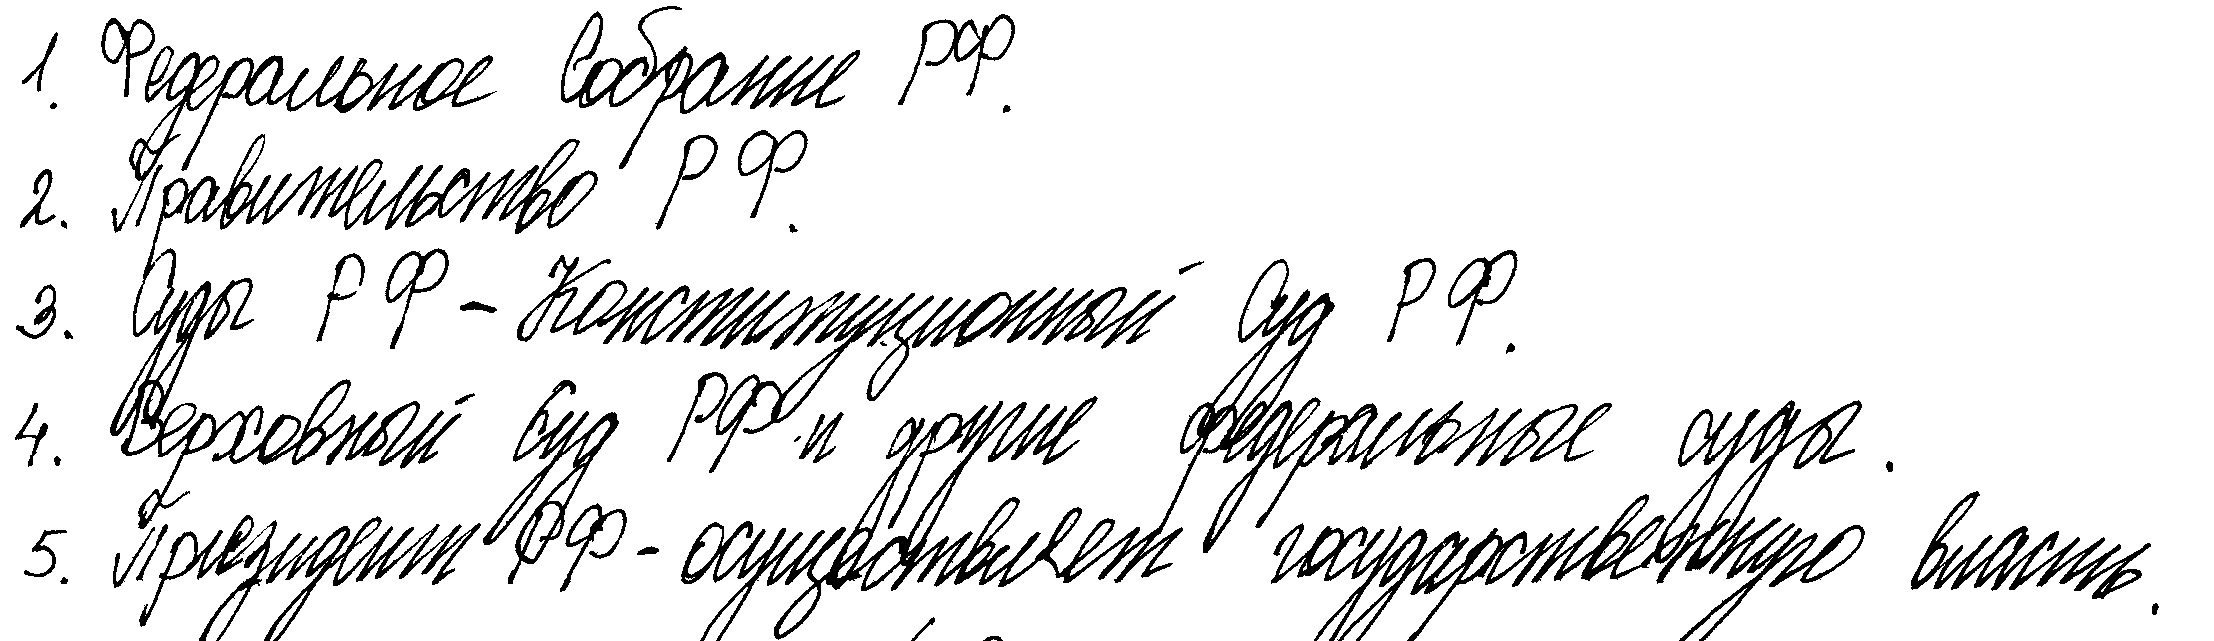 1. Федеральное Собрание РФ.
2. Правительство РФ.
3. Суды РФ - Конституционный Суд РФ.
4. Верховный Суд РФ и другие федеральные суды.
5. Президент РФ - осуществляет государственную власть.